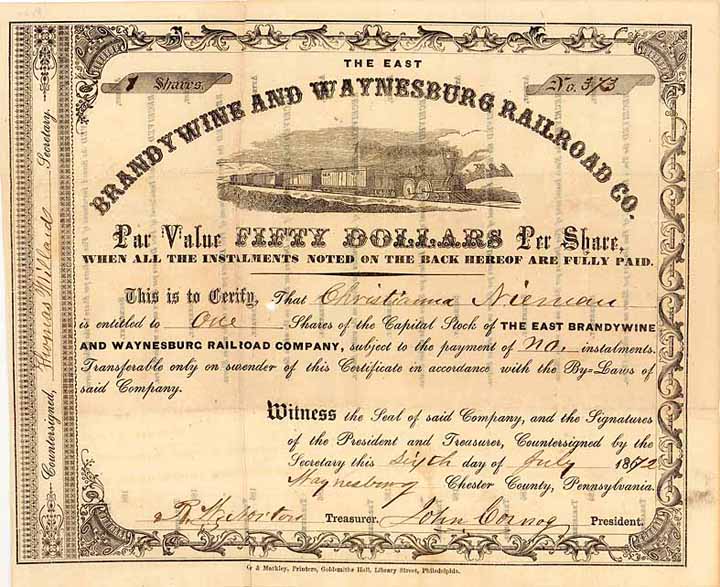 THE EAST
1 Shares.
No. 373
BRANDYWINE AND WAYNESBURG RAILROAD CO.
Par Value FIFTY DOLLARS Per Share,
WHEN ALL THE INSTALMENTS NOTED ON THE BACK HEREOF ARE FULLY PAID.
This is to Cerify, That Christianna Nieman
is entitled to One Shares of the Capital Stock of THE EAST BRANDYWINE
AND WAYNESBURG RAILROAD COMPANY, subject to the payment of no. instalments.
Transferable only on surender of this Certificate in accordance with the By=Laws of
said Company.
Witness the Seal of said Company, and the Signatures
of the President and Treasurer, Countersigned by the
Secretary this sixth day of July 1872
Waynesburg Chester County, Pennsylvania.
Treasurer. John Cornog President.
Countersigned, Thomas Millard Secretary.
& Mackley, Printers, Goldsmiths Hall, Library Street, Philadelphia.